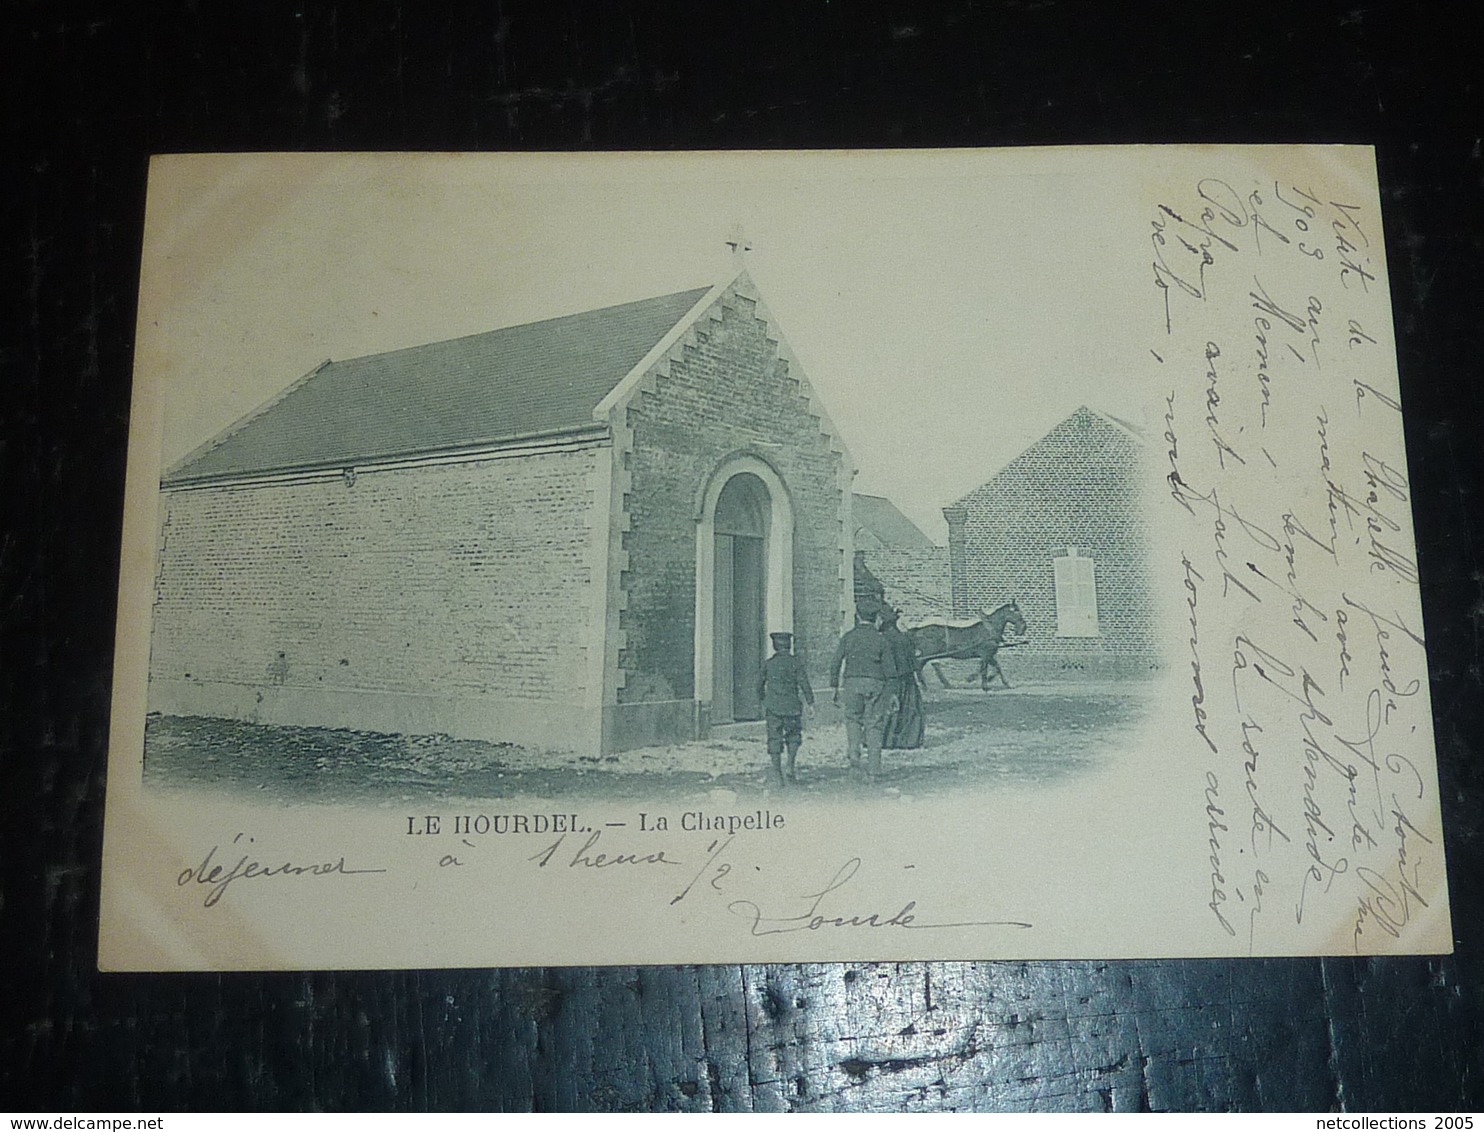 Visit de la Chapelle Jeudi 6 Août
1903 au mattin, avec
et Memon, temps splendide
Papa avait fait la route en
velo, nous sommes arrivés
LE HOURDEL. — La Chapelle
déjeuner à 1 heure 1/2.
netcollections 2005
delcampe.net